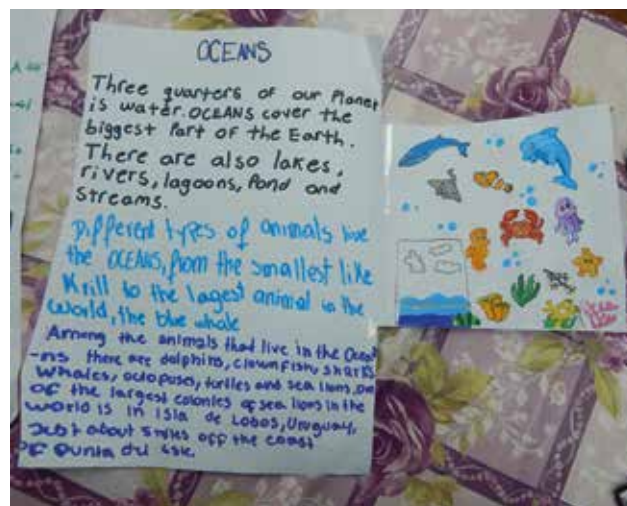 OCEANS
Three quarters of our Planet
is water. OCEANS cover the
biggest Part of the Earth.
There are also lakes,
rivers, lagoons, Pond and
Streams.
Different types of animals live
the OCEANS, from the smallest like
Krill to the lagest animal in the
world, the blue whale
Among the animals that live in the Ocea
-ns there are dolphins, clown fish, sharks,
whales, octopuses, turtles and sea lions, one
of the largest colonies of sea lions in the
world is in Isla de Lobos, Uruguay,
Just about 5 miles off the coast
of Punta del Este.